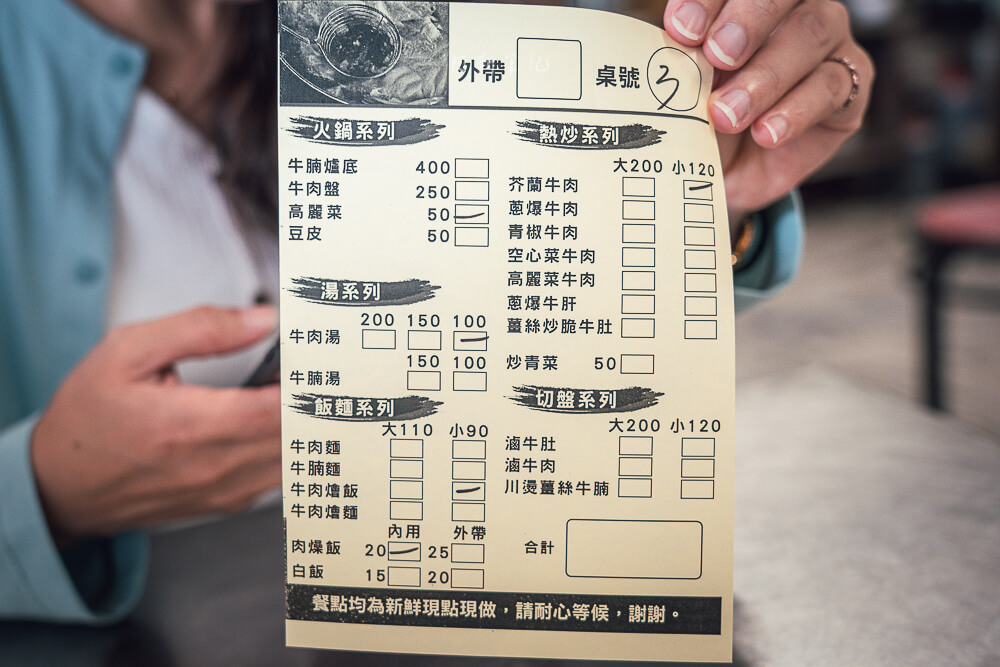 外帶 桌號 3
火鍋系列
牛腩爐底 400
牛肉盤 250
高麗菜 50
豆皮 50
湯系列
200 150 100
牛肉湯
150 100
牛腩湯
飯麵系列
大110 小90
牛肉麵
牛腩麵
牛肉燴飯
牛肉燴麵
內用 外帶
肉燥飯 20 25
白飯 15 20
熱炒系列
大200 小120
芥蘭牛肉
蔥爆牛肉
青椒牛肉
空心菜牛肉
高麗菜牛肉
蔥爆牛肝
薑絲炒脆牛肚
炒青菜 50
切盤系列
大200 小120
滷牛肚
滷牛肉
川燙薑絲牛腩
合計
餐點均為新鮮現點現做，請耐心等候，謝謝。